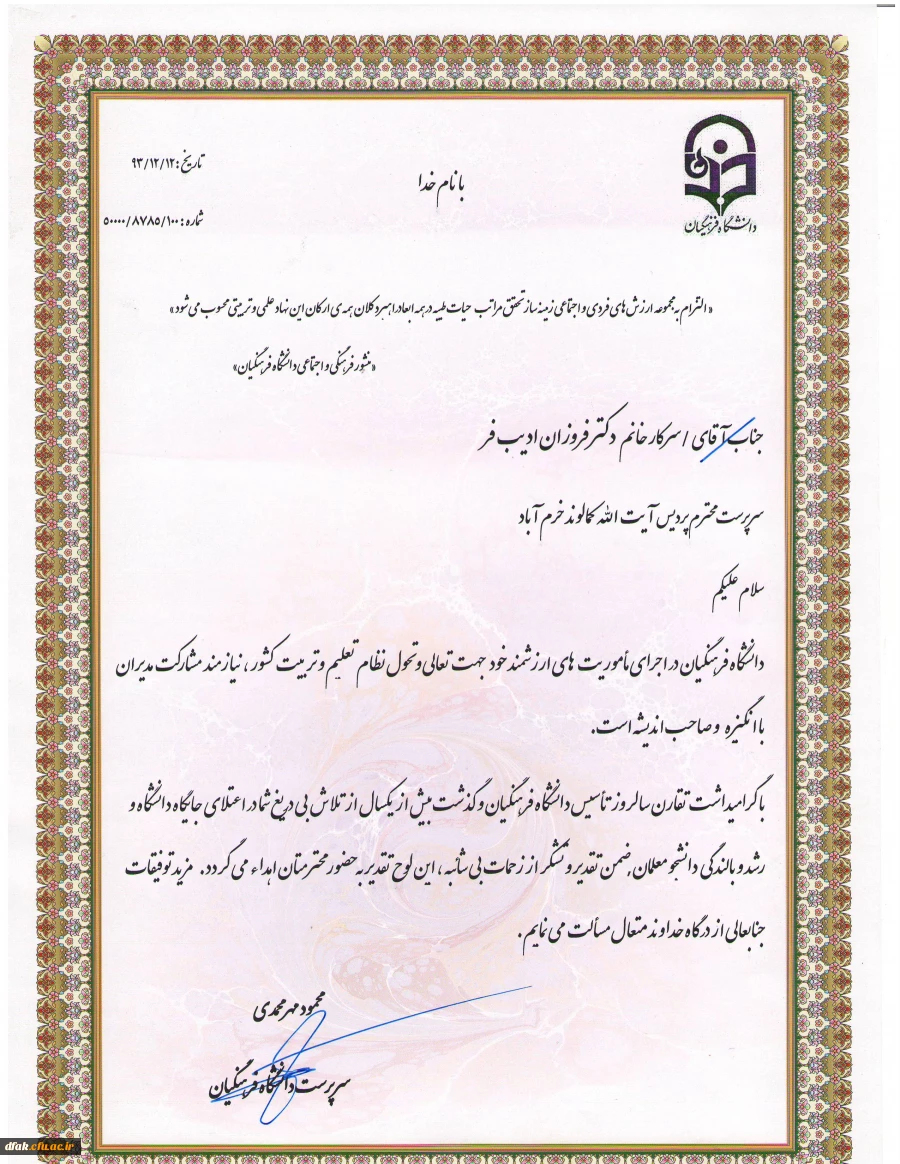 تاریخ: ۹۳/۱۲/۱۲
با نام خدا
شماره: ۵۰۰۰۰/۸۷۸۵/۱۰۰
دانشگاه فرهنگیان
« التزام به مجموعه ارزش های فردی و اجتماعی زمینه ساز تحقق مراتب حیات طیبه در همه ابعاد راهبرد کلان همه ی ارکان این نهاد علمی و تربیتی محسوب می شود »
«منشور فرهنگی و اجتماعی دانشگاه فرهنگیان»
جناب آقای / سرکار خانم دکتر فروزان ادیب فر
سرپرست محترم پردیس آیت الله کمالوند خرم آباد
سلام علیکم
دانشگاه فرهنگیان در اجرای مأموریت های ارزشمند خود جهت تعالی و تحول نظام تعلیم و تربیت کشور، نیازمند مشارکت مدیران
با انگیزه و صاحب اندیشه است.
با گرامیداشت تقارن سالروز تأسیس دانشگاه فرهنگیان و گذشت بیش از یکسال از تلاش بی دریغ شما در اعتلای جایگاه دانشگاه و
رشد و بالندگی دانشجو معلمان, ضمن تقدیر و تشکر از زحمات بی شائبه، این لوح تقدیر به حضور محترمتان اهداء می گردد. مزید توفیقات
جنابعالی از درگاه خداوند متعال مسألت می نمایم.
محمود مهرمحمدی
سرپرست دانشگاه فرهنگیان
dfak.cfu.ac.ir